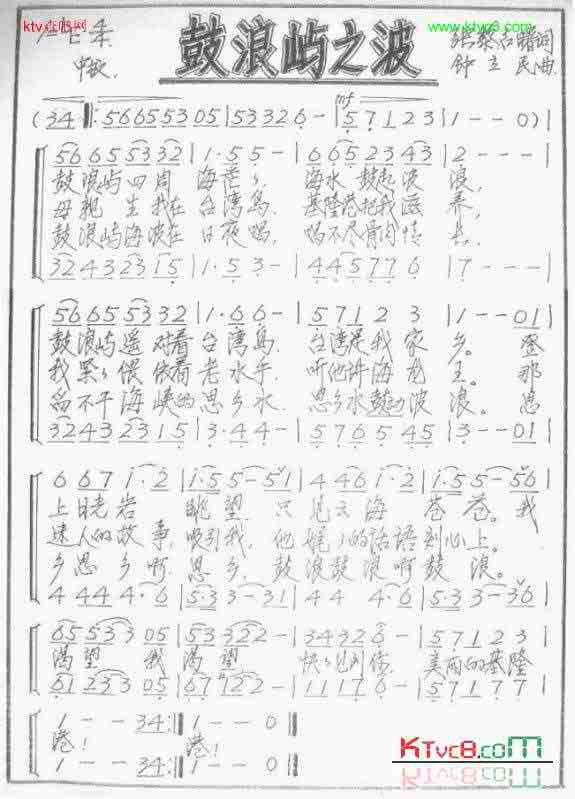 ktv在线网
www.ktvc8.com
1=C 4/4
鼓浪屿之波
中速.
张藜 红曙词
钟立民曲
mf
(34 ‖: 5665530 5 | 533326- | 57123 | 1--0) |
56 65 53 32 | 1·5 5- | 66 5 23 43 | 2--- |
鼓浪屿四周 海茫々 海水鼓起波浪,
母亲生我在台湾岛 基隆港把我滋养,
鼓浪屿海波在日夜唱 唱不尽骨肉情长
32 43 23 15 | 1·5 3- | 44 5 77 6 | 7--- |
56 65 53 32 | 1·6 6- | 5712 3 | 1--01 |
鼓浪屿遥对着台湾岛 台湾是我家乡。登
我紧々偎依着老水手 听他讲海龙王。那
舀不干海峡的思乡水 思乡水鼓动波浪。思
32 43 23 15 | 3·4 4- | 576 5 45 | 3--01 |
6 67 1·2 | 1·5 5-51 | 4 46 1·2 | 1·5 5-56 |
上日光岩 眺望 只见云海苍苍。我
迷人的故事,吸引我, 他娓々的话语刻心上。
乡思乡啊 思乡, 鼓浪鼓浪啊鼓浪。
4 44 4·6 | 5·3 3-31 | 4 4 4·6 | 5·3 3-36 |
65 533 05 | 53 322- | 3432 6- | 57123 |
渴望 我渴望 快々见到你, 美丽的基隆
61 233 05 | 67 122- | 1117 6- | 57177 |
1--34 :‖ 1--0 ‖
港! 港!
1--34 :‖ 1--0 ‖
KTvc8.com